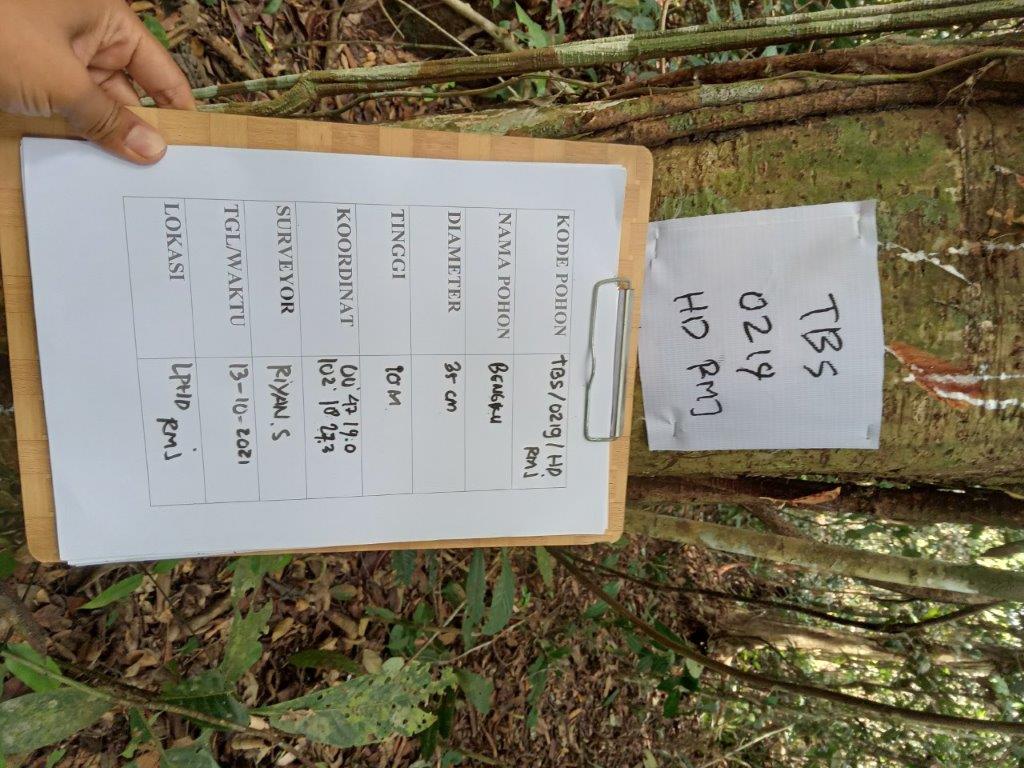 TBS
0219
HD RMJ
KODE POHON TBS/0219/HD
RMJ
NAMA POHON BENGKU
DIAMETER 35 cm
TINGGI 90 M
KOORDINAT 00°47'19.0
102° 18' 27.3
SURVEYOR RIYAN.S
TGL/WAKTU 13-10-2021
LOKASI LPHD RMJ